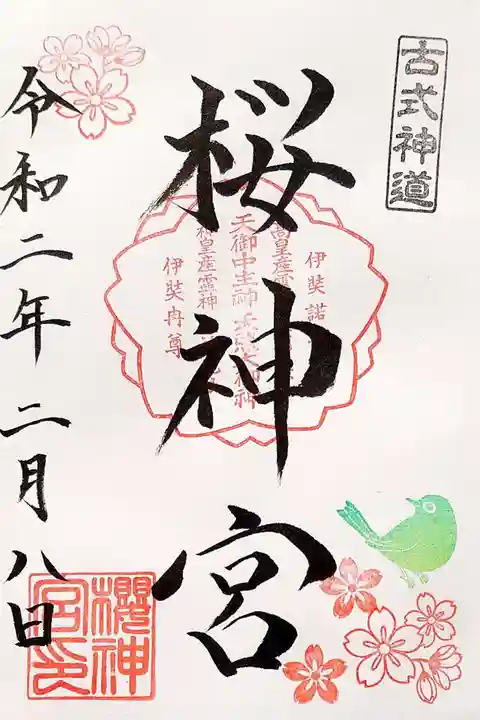 古式神道
桜神宮
伊弉諾
高皇産靈
天御中主神
皇産靈神
伊弉冉尊
令和二年二月八日
櫻神宮印